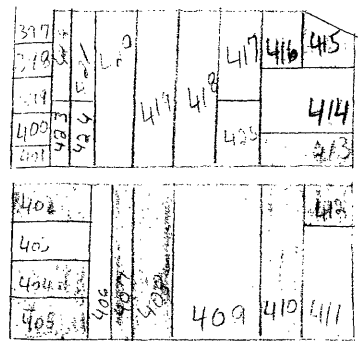 397
398
399
400
401
423
424
421
420
419
418
417
425
416
415
414
413
402
403
404
405
406
407
408
409
410
412
411